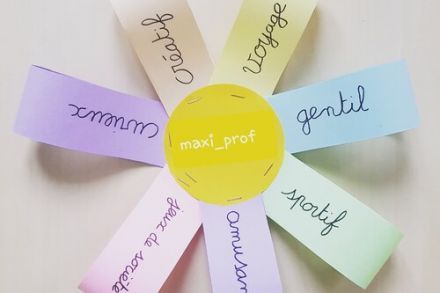 Créatif
Voyage
gentil
sportif
amusan
jeux de société
curieux
maxi_prof